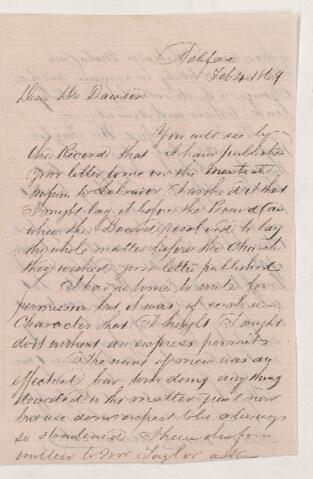 Halifax
Feb 4 1869
Dear Dr Dawson
You will see by
the Record that I have published
your letter to me on the
Mission to Labrador I wished it that
I might lay it before the Board &
when the Board resolved to lay
the whole matter before the Church
they wished your letter published
I had no time to write for
permission but it was of such a
character that I thought I might
do it without an express permit
The want of men was an
effectual bar to our doing anything
decided in the matter just now
but we do not expect to be always
so straitened I have therefore
written to Mr Taylor